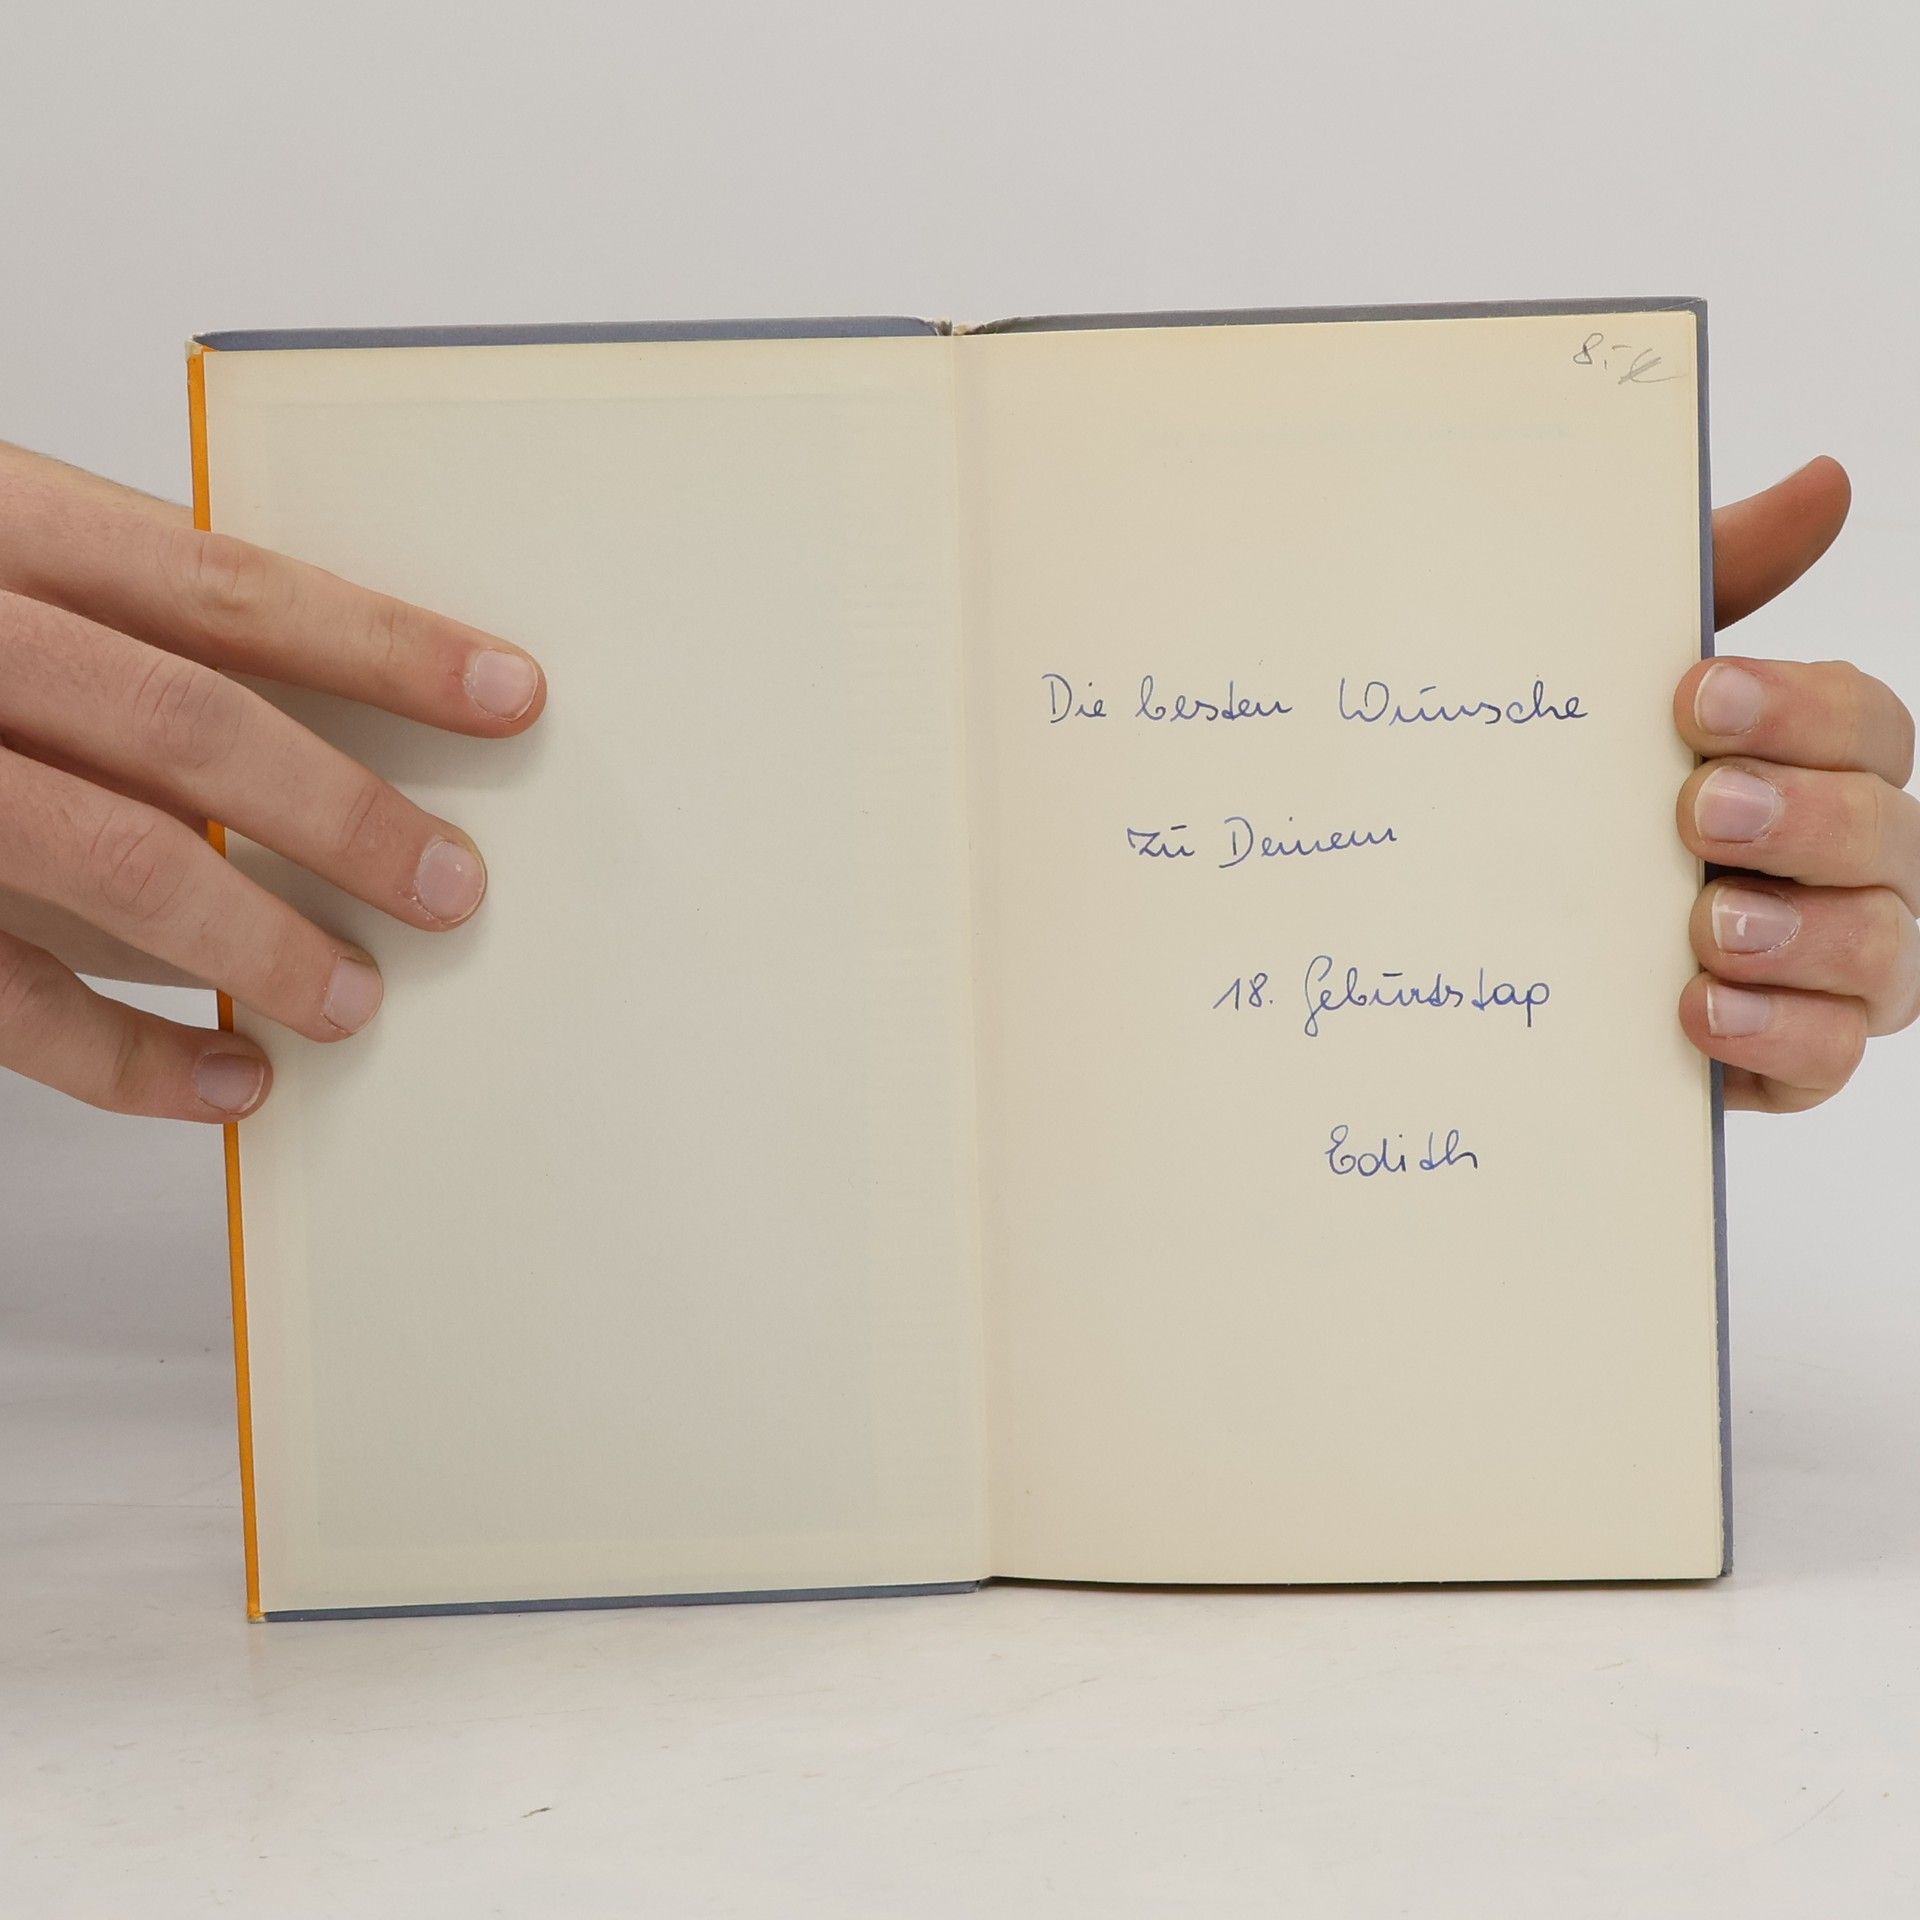 8,- €
Die besten Wünsche
zu Deinem
18. Geburtstag
Edith